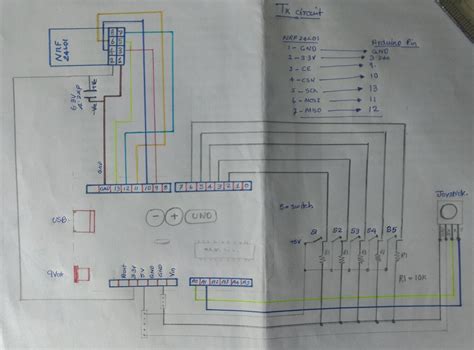 Tx circuit
NRF24L01 Arduino Pin
1 - GND GND
2 - 3.3V 3.3Vin
3 - CE 9
4 - CSN 10
5 - SCK 13
6 - MOSI 11
7 - MISO 12
NRF
24L01
+ve
-ve
GND
GND 13 12 11 10 9 8
7 6 5 4 3 2 1 0
USB
UNO
S = switch
S1 S2 S3 S4 S5
+5V
R1 R1 R1 R1 R1
R1 = 10K
Joystick
9Volt
Rest 3.3V 5V GND GND Vin
A0 A1 A2 A3 A4 A5